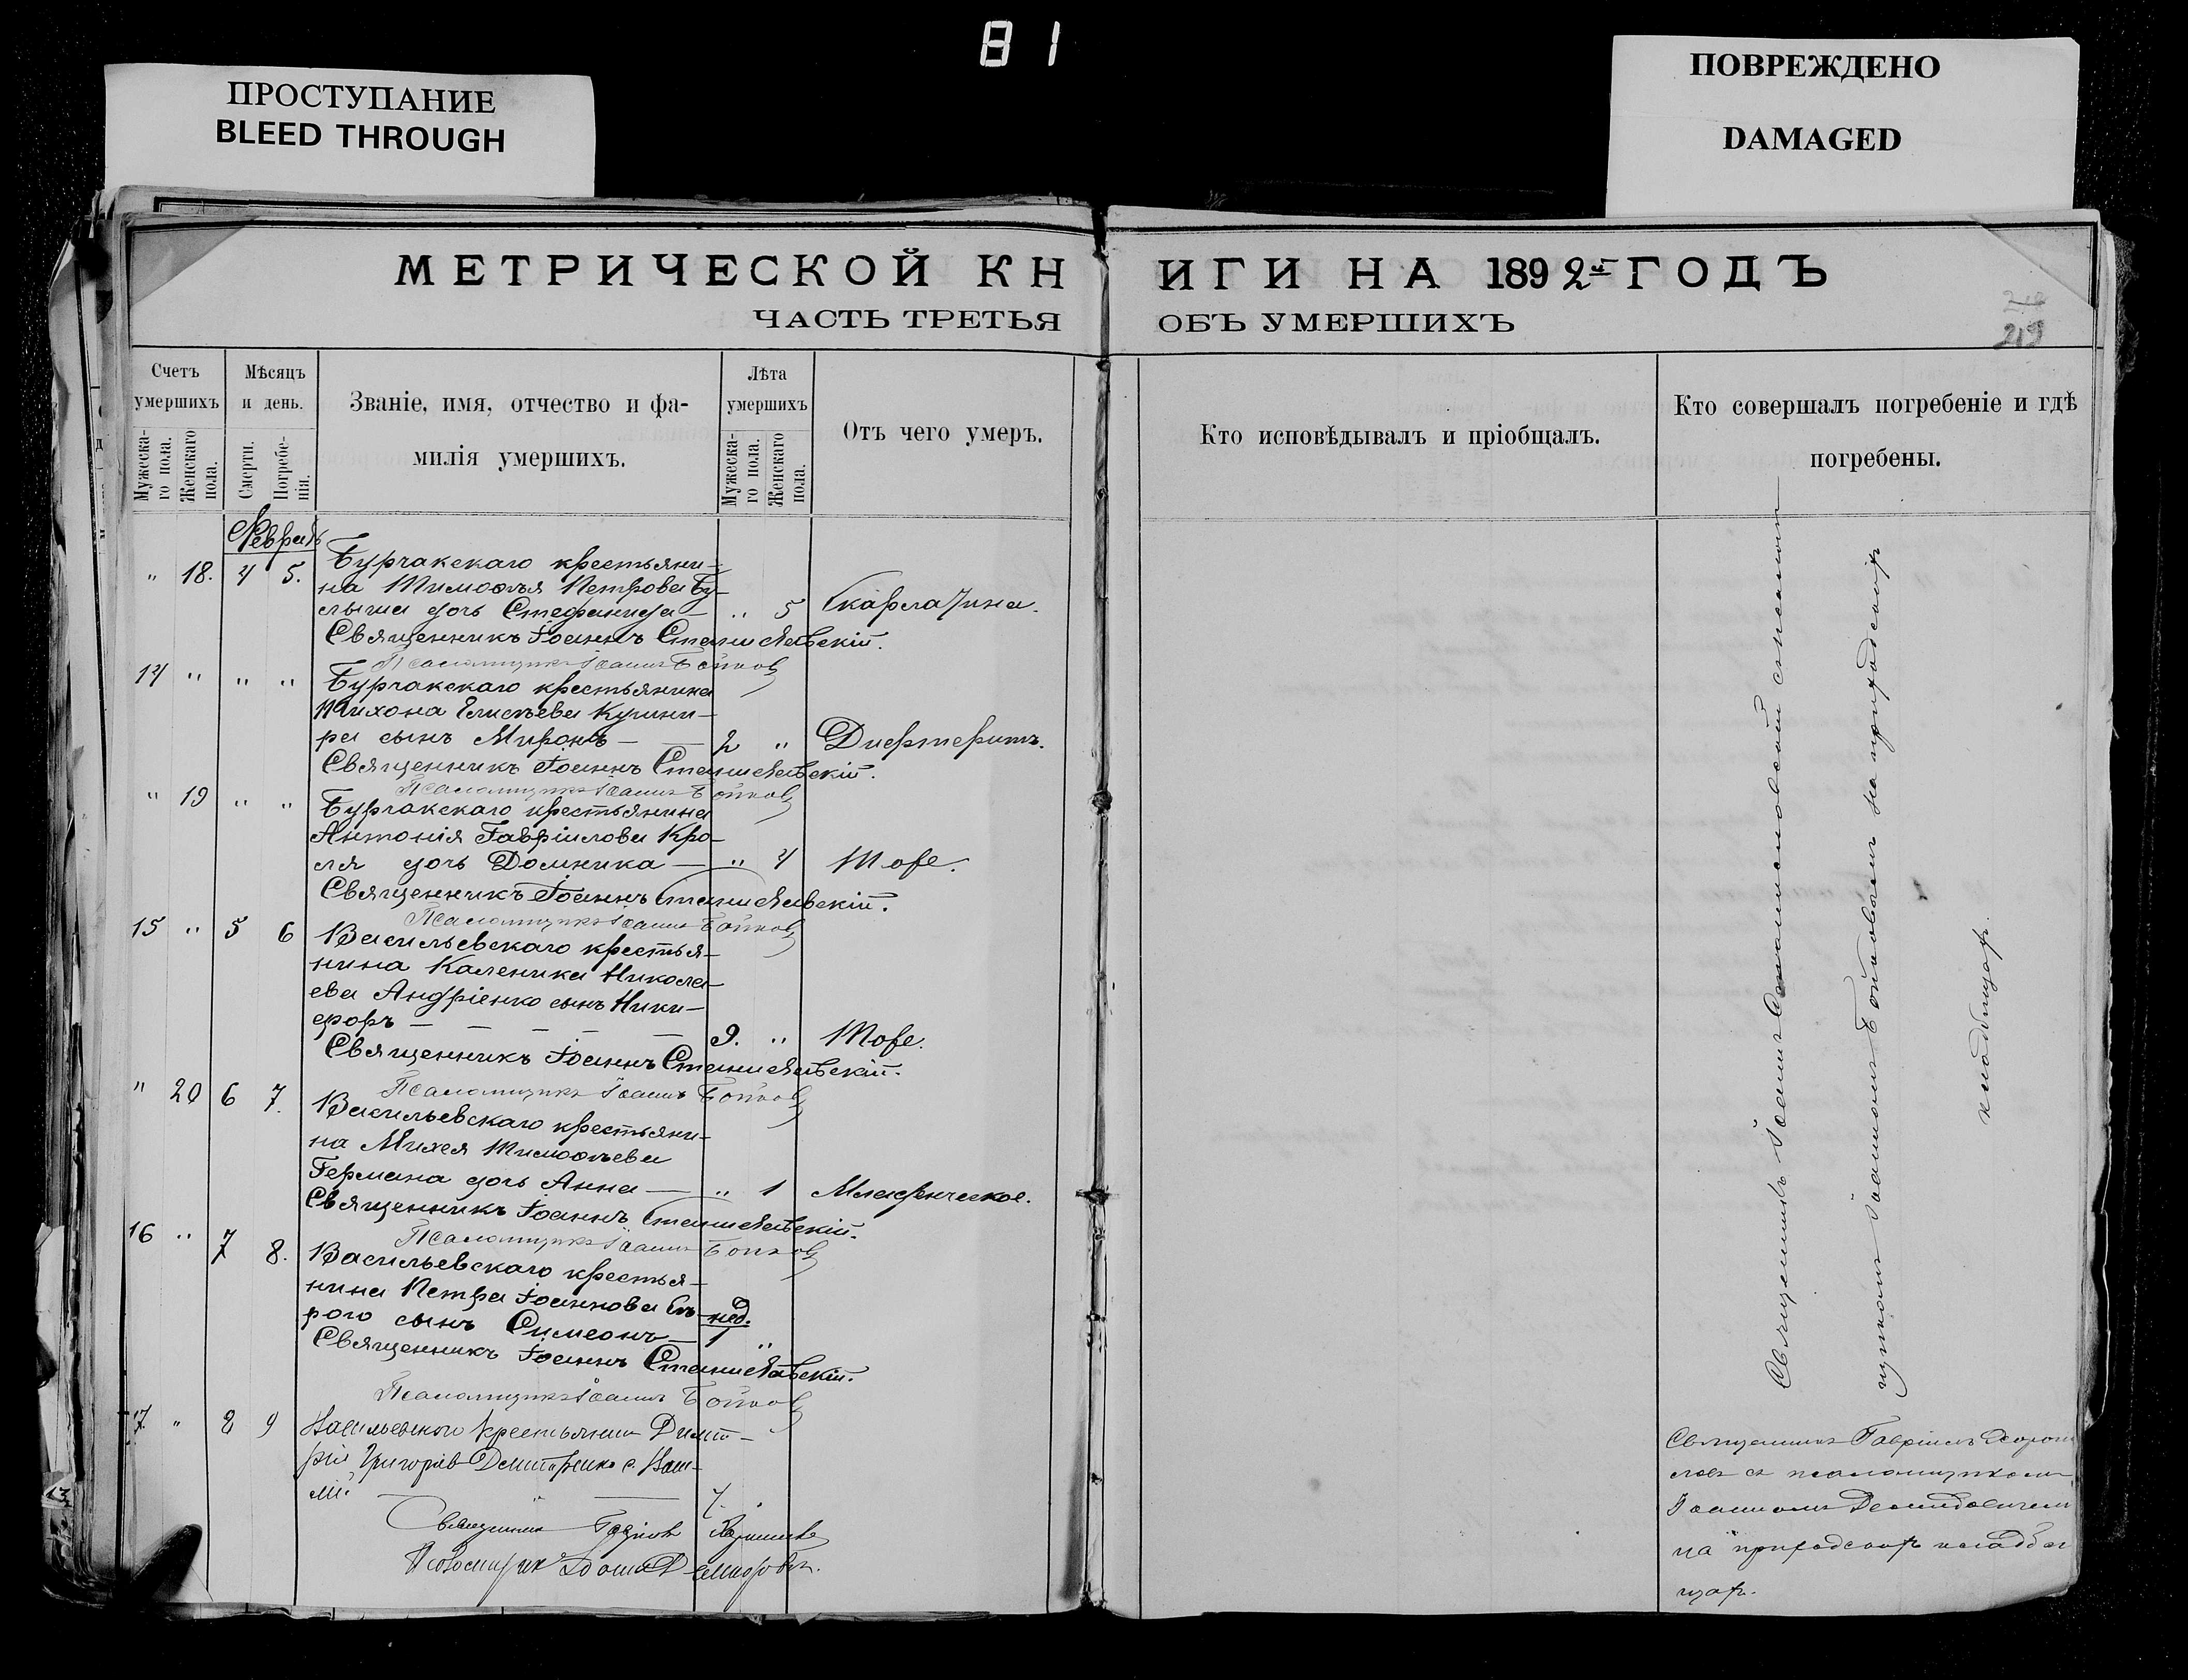 81
ПРОСТУПАНИЕ
BLEED THROUGH
ПОВРЕЖДЕНО
DAMAGED
МЕТРИЧЕСКОЙ КНИГИ НА 1892й ГОДЪ
ЧАСТЬ ТРЕТЬЯ ОБЪ УМЕРШИХЪ
219
Счетъ умершихъ
Мужескаго пола.
Женскаго пола.
Мѣсяцъ и день.
Смерти.
Погребенія.
Званіе, имя, отчество и фамилія умершихъ.
Лѣта умершихъ
Мужескаго пола.
Женскаго пола.
Отъ чего умеръ.
Кто исповѣдывалъ и пріобщалъ.
Кто совершалъ погребеніе и гдѣ погребены.
Февраль
" 18. 4 5. Бурчакскаго крестьяни-
на Тимоѳея Петрова Бу-
лыша дочь Стефанида — " 5 Скарлатина.
Священникъ Іоаннъ Станиславскій.
Псаломщикъ Іоаннъ Бойков
14 " " " Бурчакскаго крестьянина
Тихона Елисѣева Кушни-
ра сынъ Миронъ — 2 " Дифтеритъ.
Священникъ Іоаннъ Станиславскій.
Псаломщикъ Іоаннъ Бойков
" 19 " " Бурчакскаго крестьянина
Антонія Гавріилова Кро-
ля дочь Домника — " 4 Тоже.
Священникъ Іоаннъ Станиславскій.
Псаломщикъ Іоаннъ Бойков
15 " 5 6 Васильевскаго крестья-
нина Каленика Никола-
ева Андріенко сынъ Ники-
форъ — — — — — 9. " Тоже.
Священникъ Іоаннъ Станиславскій.
Псаломщикъ Іоаннъ Бойков
" 20 6 7. Васильевскаго крестьяни-
на Михея Тимоѳеева
Германа дочь Анна — " 1 Младенческое.
Священникъ Іоаннъ Станиславскій.
Псаломщикъ Іоаннъ Бойков
16 " 7 8. Васильевскаго крестья-
нина Петра Іоаннова
рого сынъ Симеонъ — нед. 1 "
Священникъ Іоаннъ Станиславскій.
Псаломщикъ Іоаннъ Бойков
17. " 8 9 Васильевскаго крестьянина Димит-
рія Григоріев Демитренко с.
Священник
Псаломщик
Священникъ Іоаннъ Станиславскій съ псалом-
щикомъ Іоанномъ Бойковымъ на приходскомъ
кладбищѣ.
Священникъ Гавріилъ
съ псаломщикомъ
Іоанномъ
на приходскомъ кладби
щѣ.